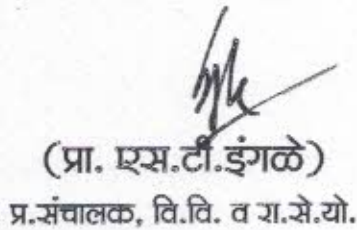 (प्रा. एस.टी.इंगळे)
प्र.संचालक, वि.वि. व रा.से.यो.